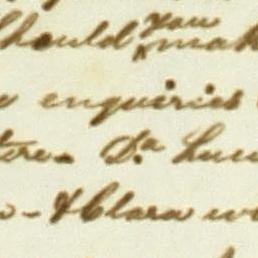 should you mak
enquiries
Da Luc
& Clara wi